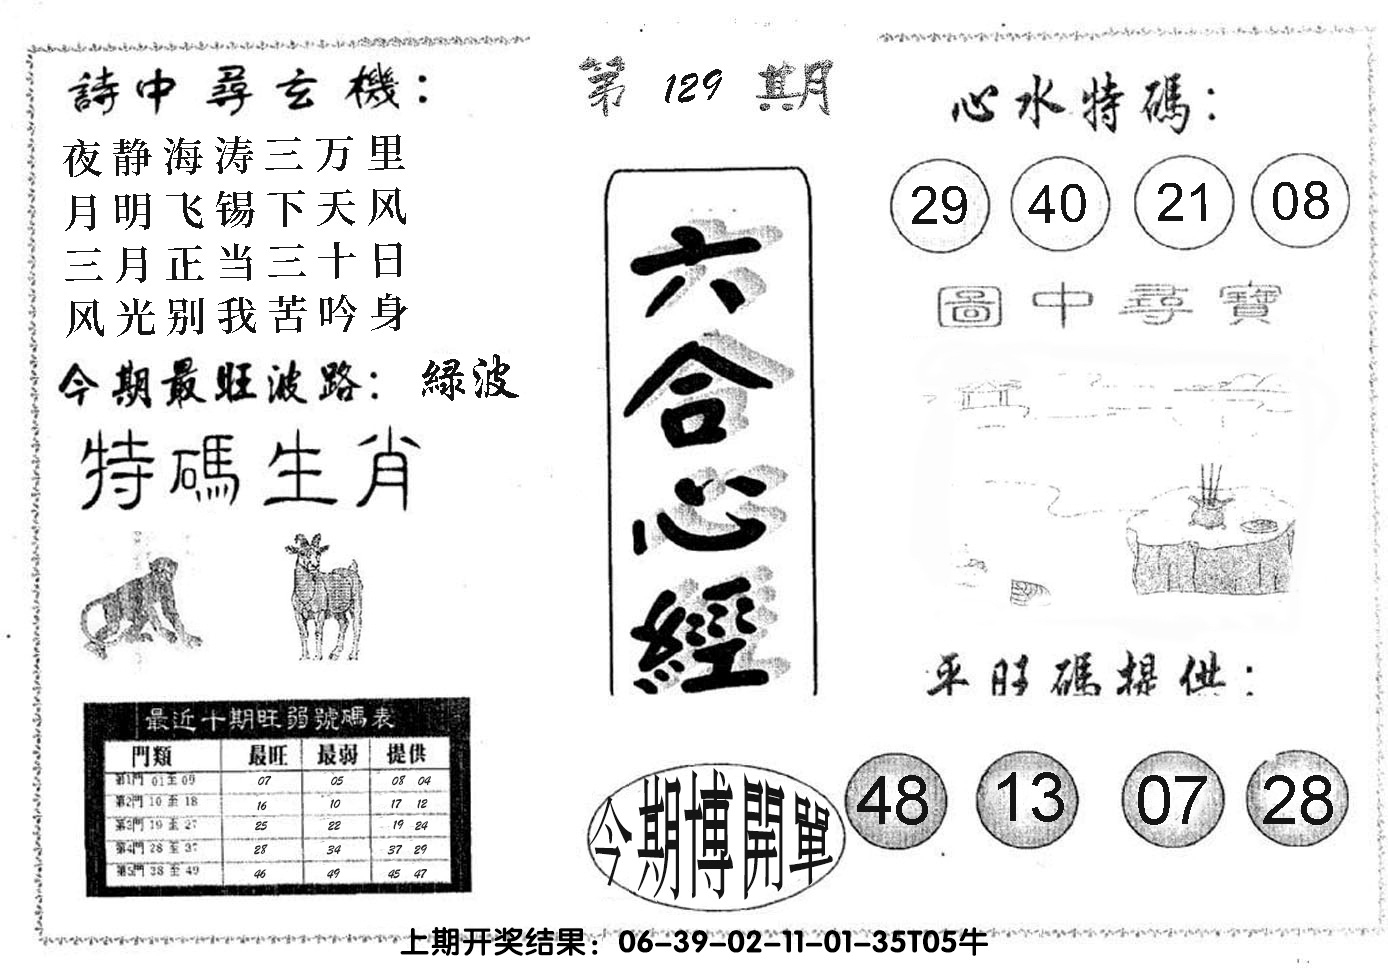 詩中尋玄機：
夜静海涛三万里
月明飞锡下天风
三月正当三十日
风光别我苦吟身
今期最旺波路：緑波
特碼生肖
最近十期旺弱號碼表
門類 最旺 最弱 提供
第1門 01至09 07 05 08 04
第2門 10至18 16 10 17 12
第3門 19至27 25 22 19 24
第4門 28至37 28 34 37 29
第5門 38至49 46 49 45 47
第129期
六合心經
今期博開單
心水特碼：
29 40 21 08
圖中尋寶
平旺碼提供：
48 13 07 28
上期开奖结果：06-39-02-11-01-35T05牛